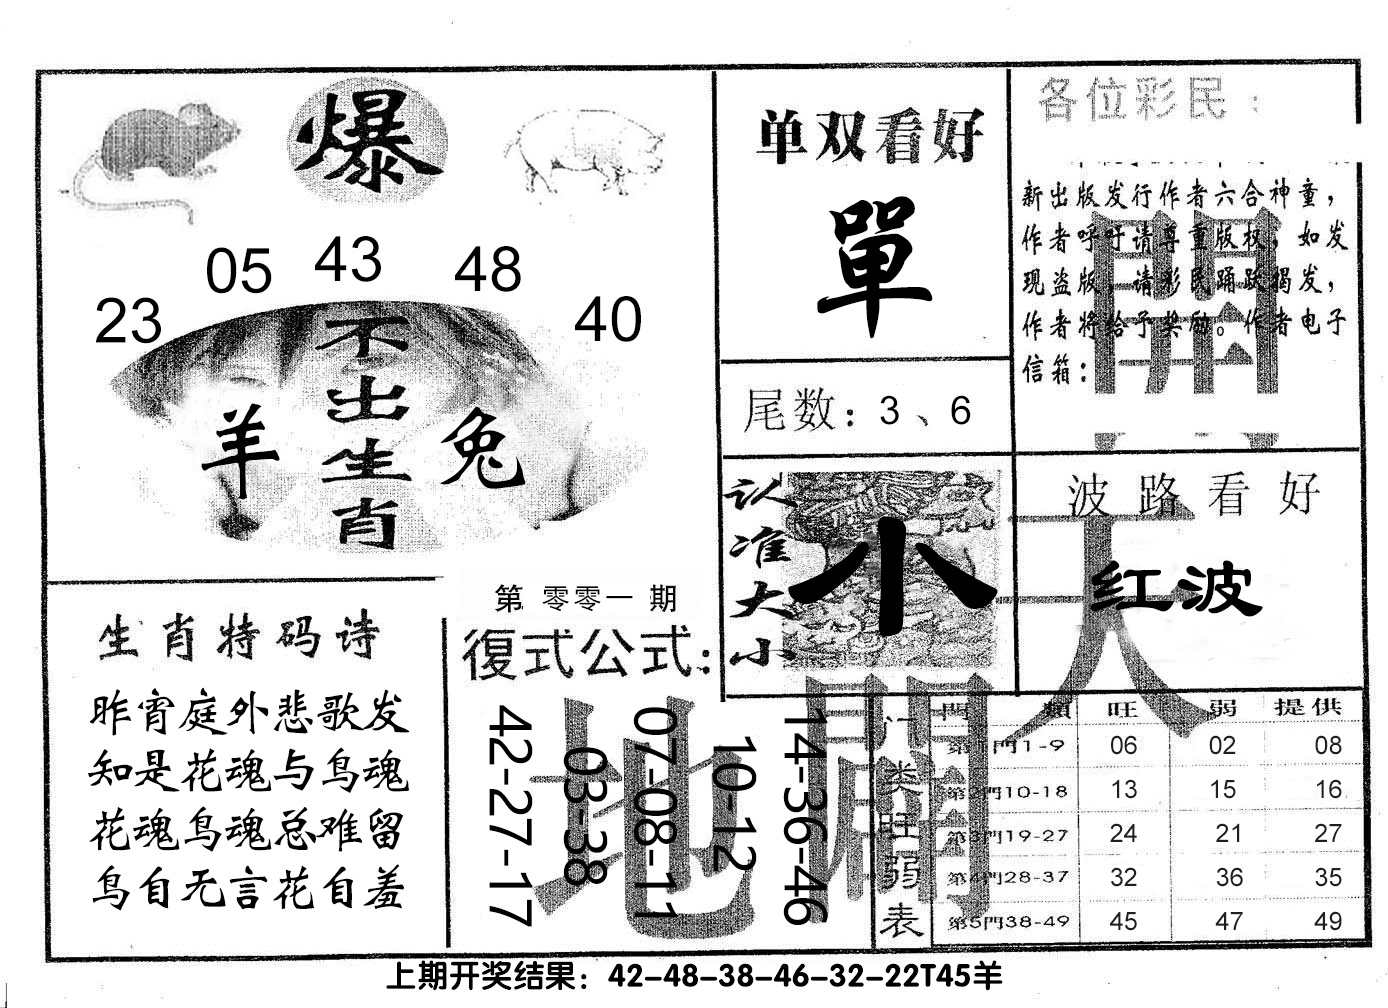 爆
05 43 48
23 40
不出生肖
羊 兔
单双看好
單
尾数：3、6
各位彩民：
新出版发行作者六合神童，
作者呼吁请尊重版权，如发
现盗版，请彩民踊跃揭发，
作者将给予奖励。作者电子
信箱：
認准大小
小
波路看好
红波
天
開
地
開
生肖特码诗
昨宵庭外悲歌发
知是花魂与鸟魂
花魂鸟魂总难留
鸟自无言花自羞
第 零零一 期
復式公式：
42-27-17
03-38
07-08-11
10-12
14-36-46
门类旺弱表
門類 旺 弱 提供
第1門1-9 06 02 08
第2門10-18 13 15 16
第3門19-27 24 21 27
第4門28-37 32 36 35
第5門38-49 45 47 49
上期开奖结果：42-48-38-46-32-22T45羊